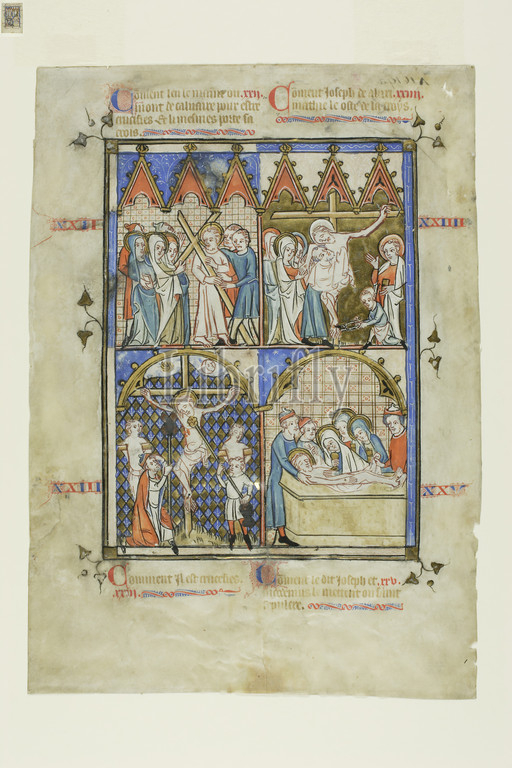 Coment len le maine ou .xxii.
mont de caluaire pour estre
crucifies. Et li mesmes porte sa
crois.
Coment Joseph de .xxiiii.
mathie le oste de la crois
XXII
XXIIII
librifly
XXIII
XXV
Comment Jl est crucefies.
xxiii.
Coment le dit Joseph et .xxv.
le mettent ou saint
sepulcre.